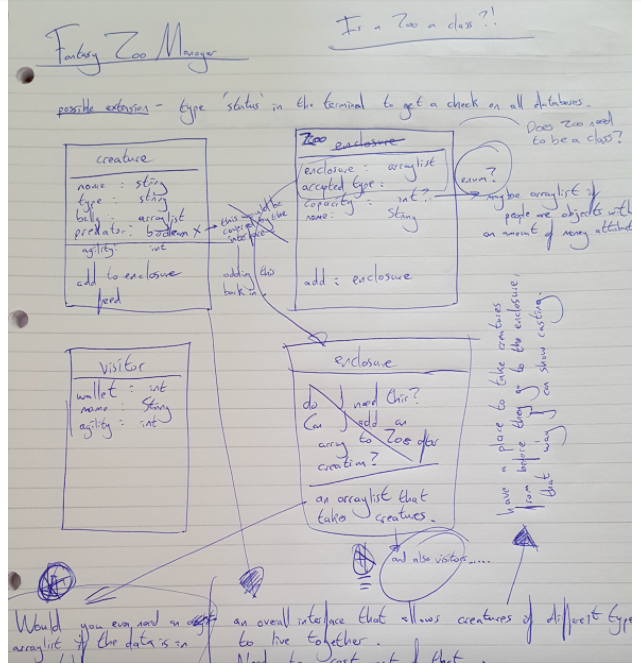 Is a Zoo a class?!
Fantasy Zoo Manager
possible extension - type 'status' in the terminal to get a check on all databases.
Does Zoo need
to be a class?
creature
name : string
type : string
belly : arraylist
predator : boolean
agility : int
add to enclosure
feed
this would be
covered by the
interface
adding this
back in.
Zoo enclosure
enclosure : arraylist
accepted type :
capacity : int?
name : String
add : enclosure
enum?
maybe arraylist if
people are objects with
an amount of money
visitor
wallet : int
name : String
agility : int
enclosure
do I need this?
Can I add an
array to Zoo after
creation?
an arraylist that
takes creatures.
and also visitors.....
have a place to take creatures
from before they go to the enclosure,
that way I can show casting.
Would you even need an
arraylist if the data is in
an overall interface that allows creatures of different type
to live together.
Need to cast out of that